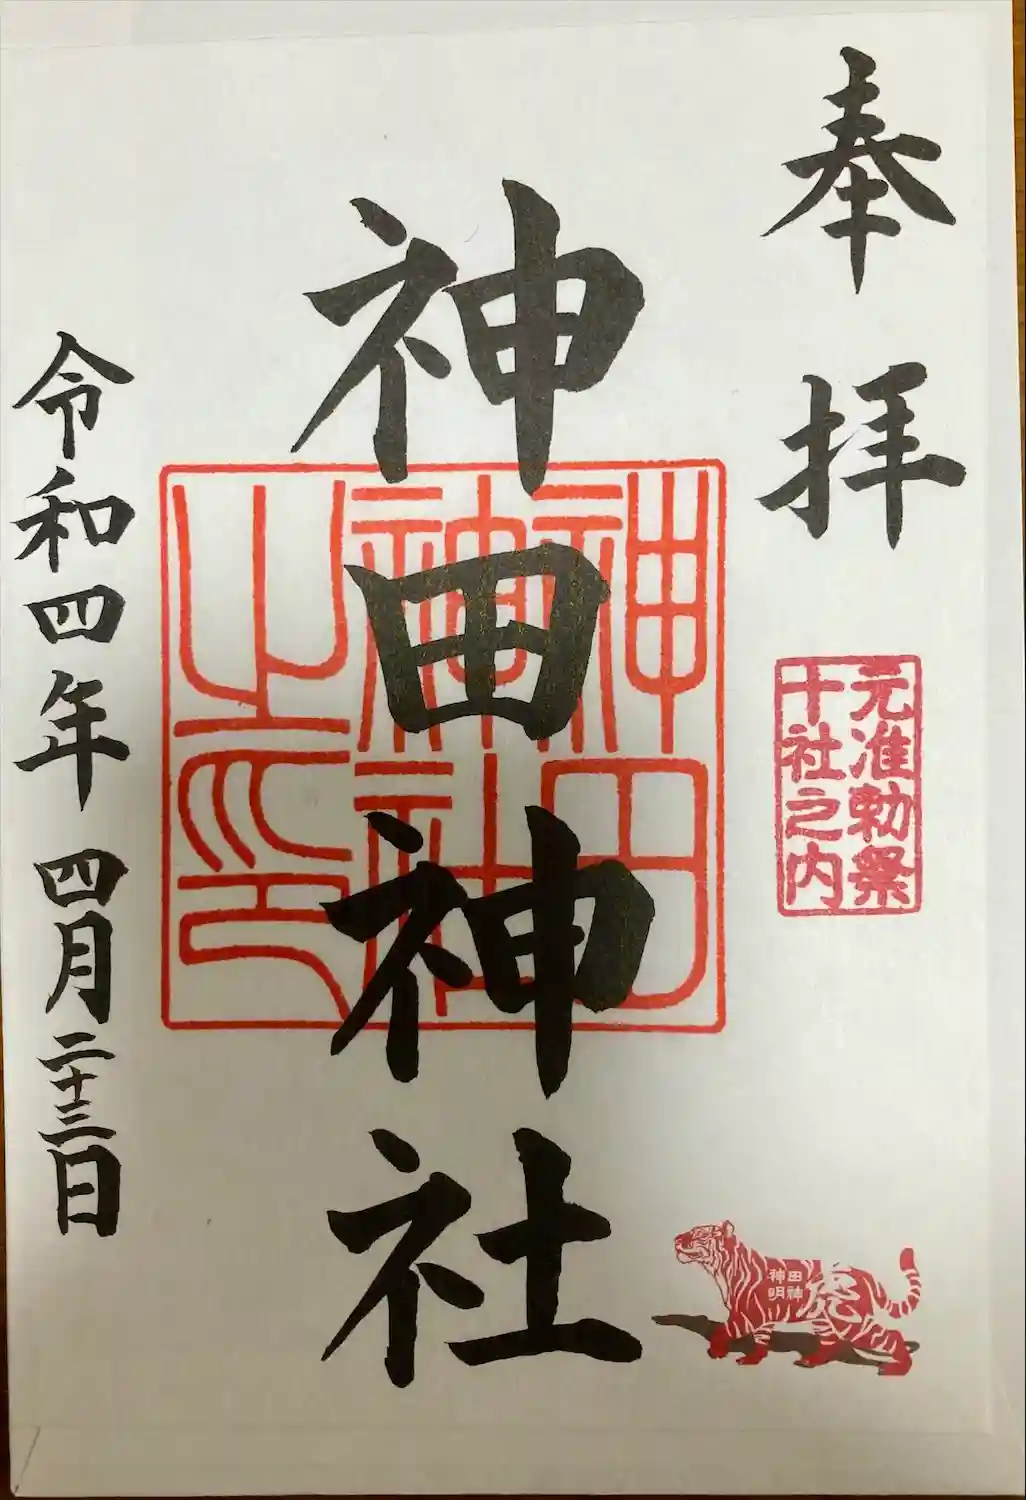 奉拝
元准勅祭
十社之内
神田神社
神田
神社
之印
令和四年 四月二十三日
神田
明神
虎